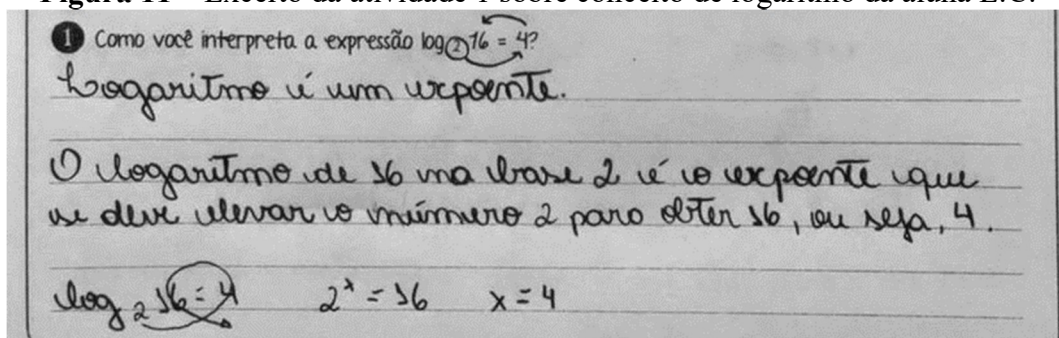 Figura 11 – Excerto da atividade 1 sobre conceito de logaritmo da aluna E.C.
1 Como você interpreta a expressão log₂16 = 4?
Logaritmo é um expoente.
O logaritmo de 16 na base 2 é o expoente que
se deve elevar o número 2 para obter 16, ou seja, 4.
log₂16 = 4 2ˣ = 16 x = 4